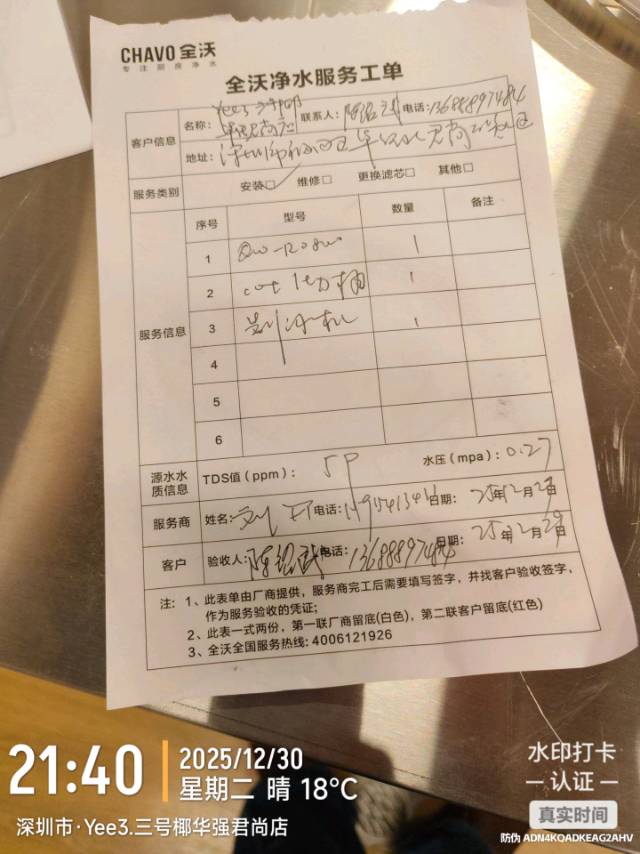 CHAVO 全沃
专注厨房净水
全沃净水服务工单
客户信息
名称: Yee3 三号椰 联系人: 电话: 13688897484
地址: 深圳市
服务类别 安装□ 维修□ 更换滤芯□ 其他□
服务信息
序号 型号 数量 备注
1 1
2 1
3 1
4
5
6
源水水质信息 TDS值(ppm): 水压(mpa): 0.27
服务商 姓名: 刘 电话: 日期: 25年12月29日
客户 验收人: 电话: 13688897484 日期: 25年12月29日
注: 1、此表单由厂商提供，服务商完工后需要填写签字，并找客户验收签字，
作为服务验收的凭证;
2、此表一式两份，第一联厂商留底(白色)，第二联客户留底(红色)
3、全沃全国服务热线: 4006121926
21:40
2025/12/30
星期二 晴 18°C
深圳市·Yee3.三号椰华强君尚店
水印打卡
认证
真实时间
防伪 ADN4KQADKEAG2AHV